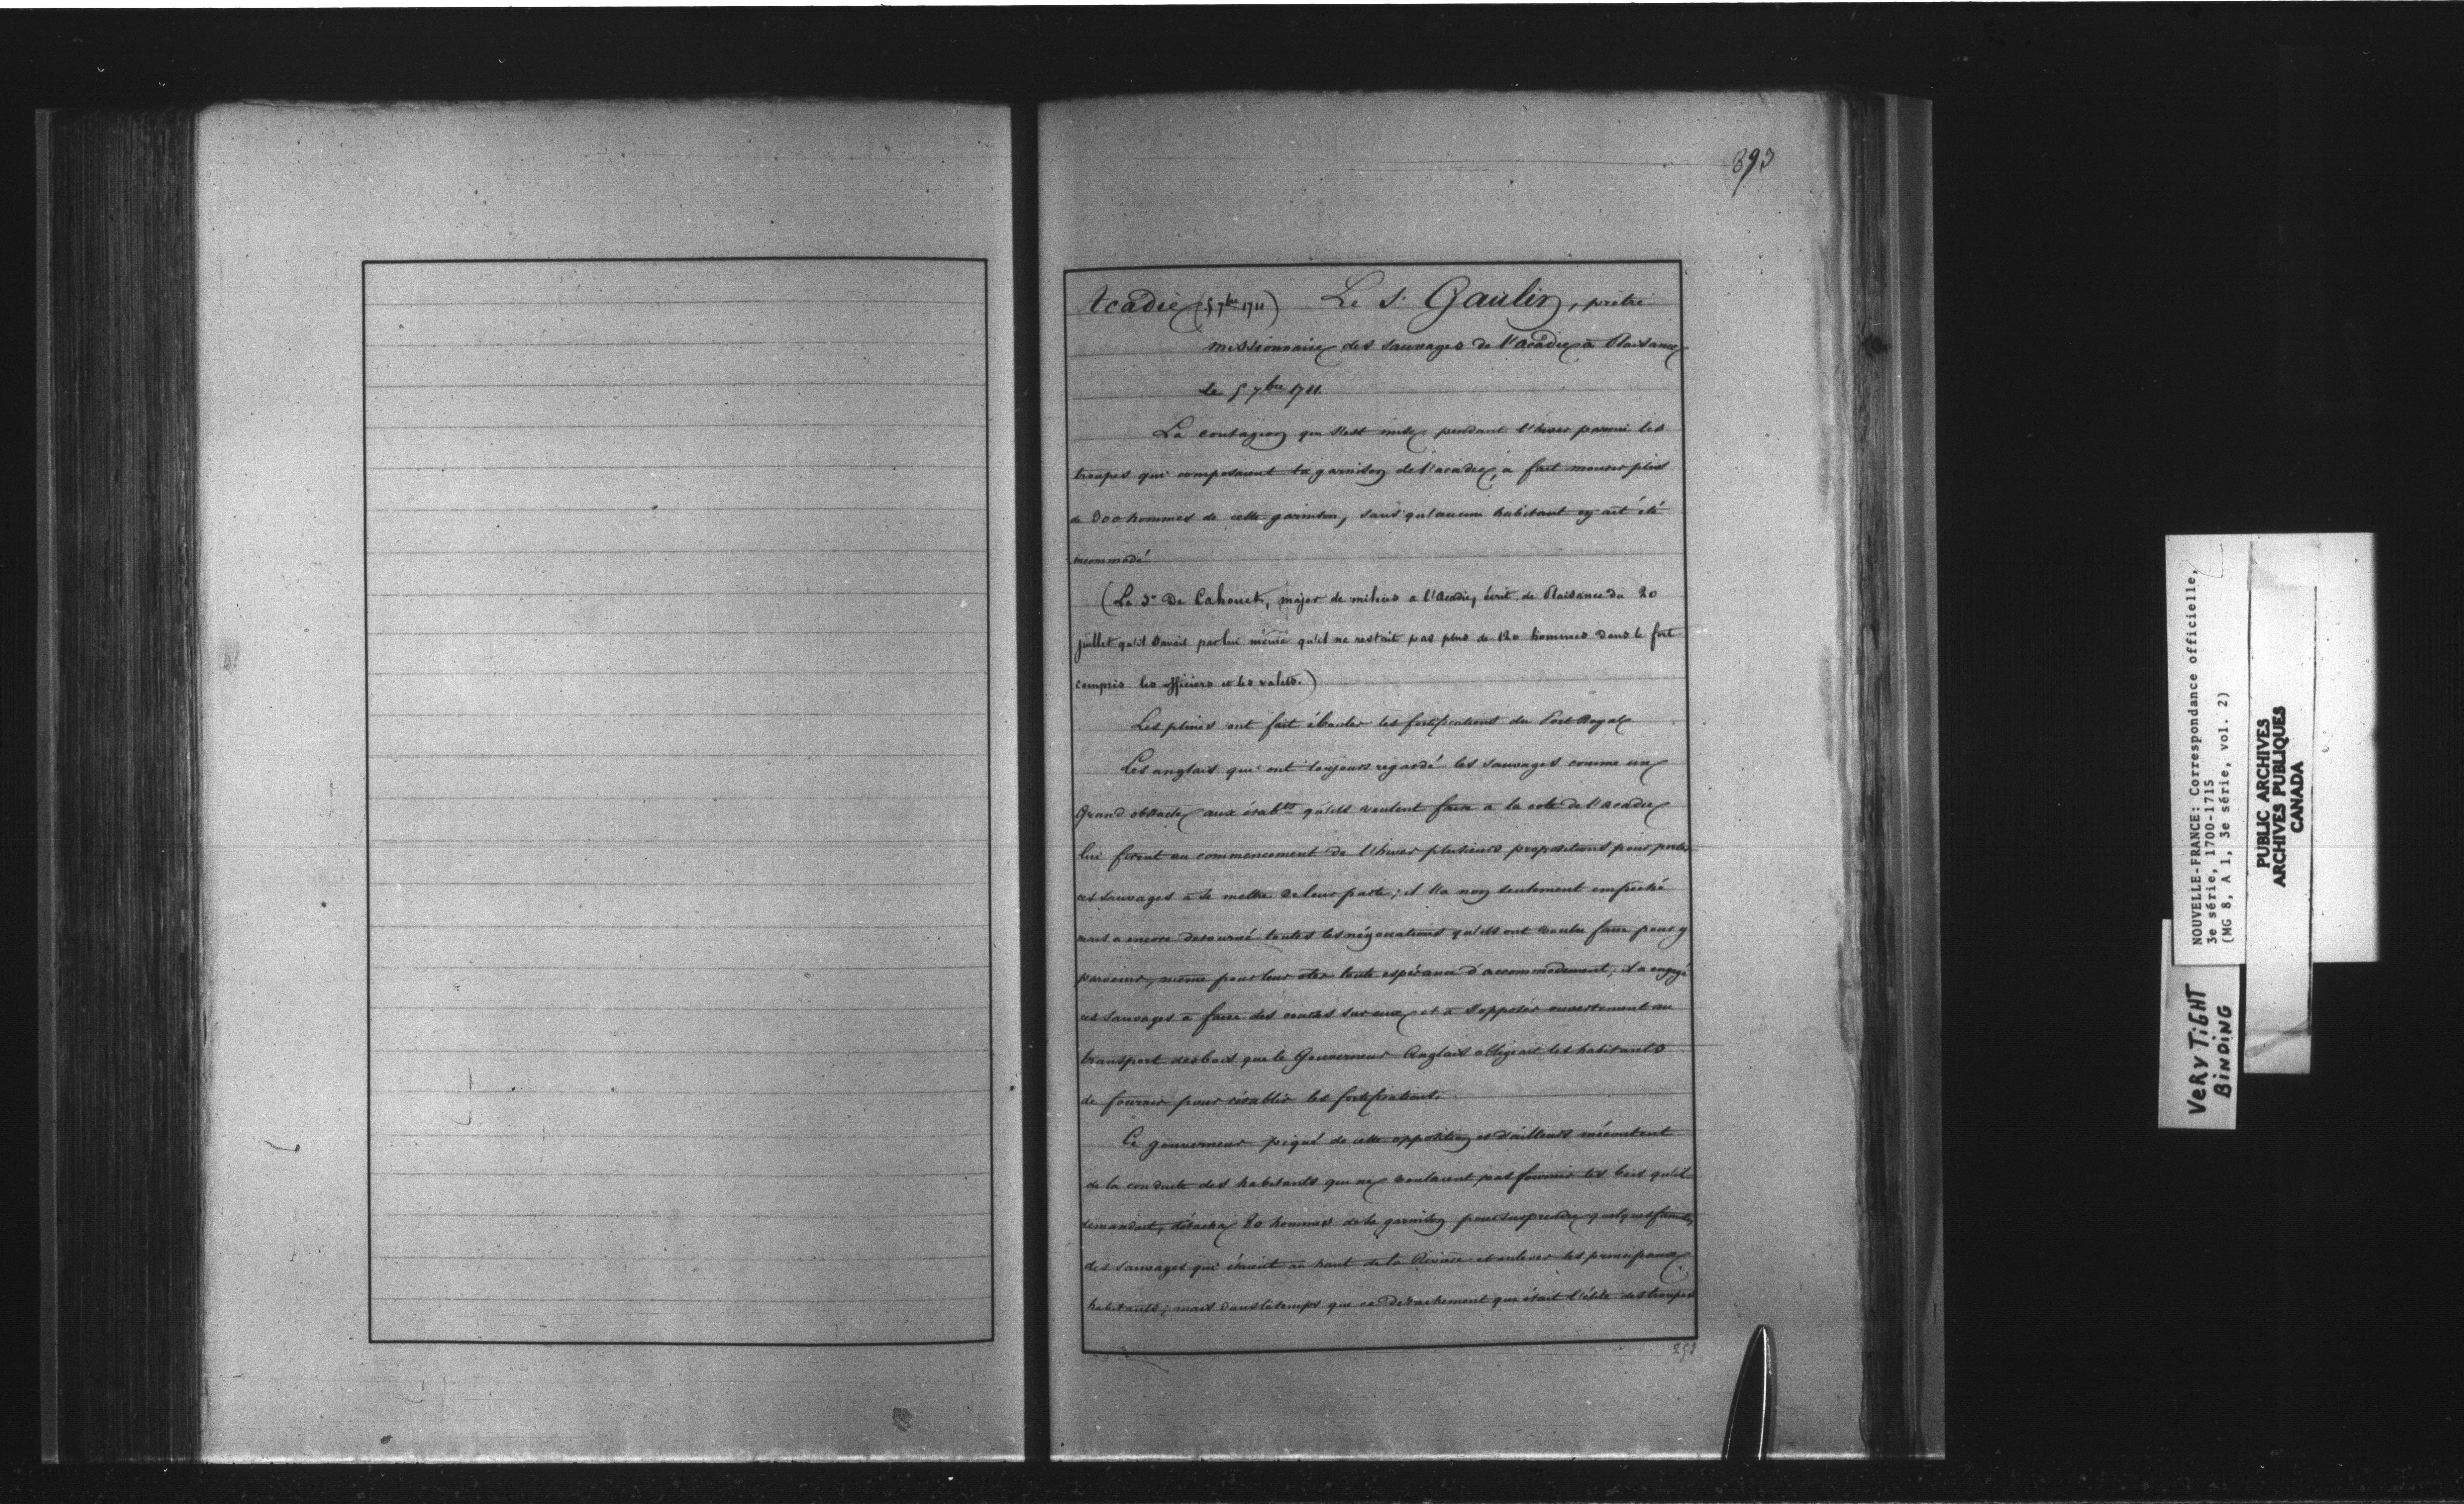 893
Acadie (5 7bre 1711) Le S. Gaulin, prêtre
missionnaire des sauvages de l'acadie à Plaisance
Le 5 7bre 1711.
La contagion qui s'est mise pendant l'hiver parmi les
troupes qui composaient la garnison de l'acadie, a fait mourir plus
de 300 hommes de cette garnison, sans qu'aucun habitant en ait été
incommodé
(Le Sr De Cahouet, major de milices a l'Acadie, écrit de Plaisance du 20
juillet qu'il savait par lui même qu'il ne restait pas plus de 120 hommes dans le fort
compris les officiers et les valets.)
Les pluies ont fait ébouler les fortifications du Port Royal
Les anglais qui ont toujours regardé les sauvages comme un
Grand obstacle aux étabts qu'ils veulent faire a la cote de l'acadie
lui firent au commencement de l'hiver plusieurs propositions pour porter
ces sauvages à se mettre de leur parti; il l'a non seulement empeché
mais a encore detourné toutes les négociations qu'ils ont voulu faire pour y
parvenir, même pour leur oter toute espérance d'accommodement, il a engagé
ces sauvages a faire des courses sur eux et à s'opposer ouvertement au
transport des bois que le Gouverneur Anglais obligeait les habitants
de fournir pour rétablir les fortifications.
Ce gouverneur piqué de cette opposition et d'ailleurs mécontent
de la conduite des habitants qui ne voulaient pas fournir les bois qu'il
demandait, détacha 20 hommes de la garnison pour surprendre quelques familles
des sauvages qui étaient au haut de la Rivière et enlever les principaux
habitants; mais dans le temps que ce détachement qui était l'élite des troupes
293
NOUVELLE-FRANCE: Correspondance officielle,
3e série, 1700-1715
(MG 8, A 1, 3e série, vol. 2)
PUBLIC ARCHIVES
ARCHIVES PUBLIQUES
CANADA
VERY TIGHT
BINDING